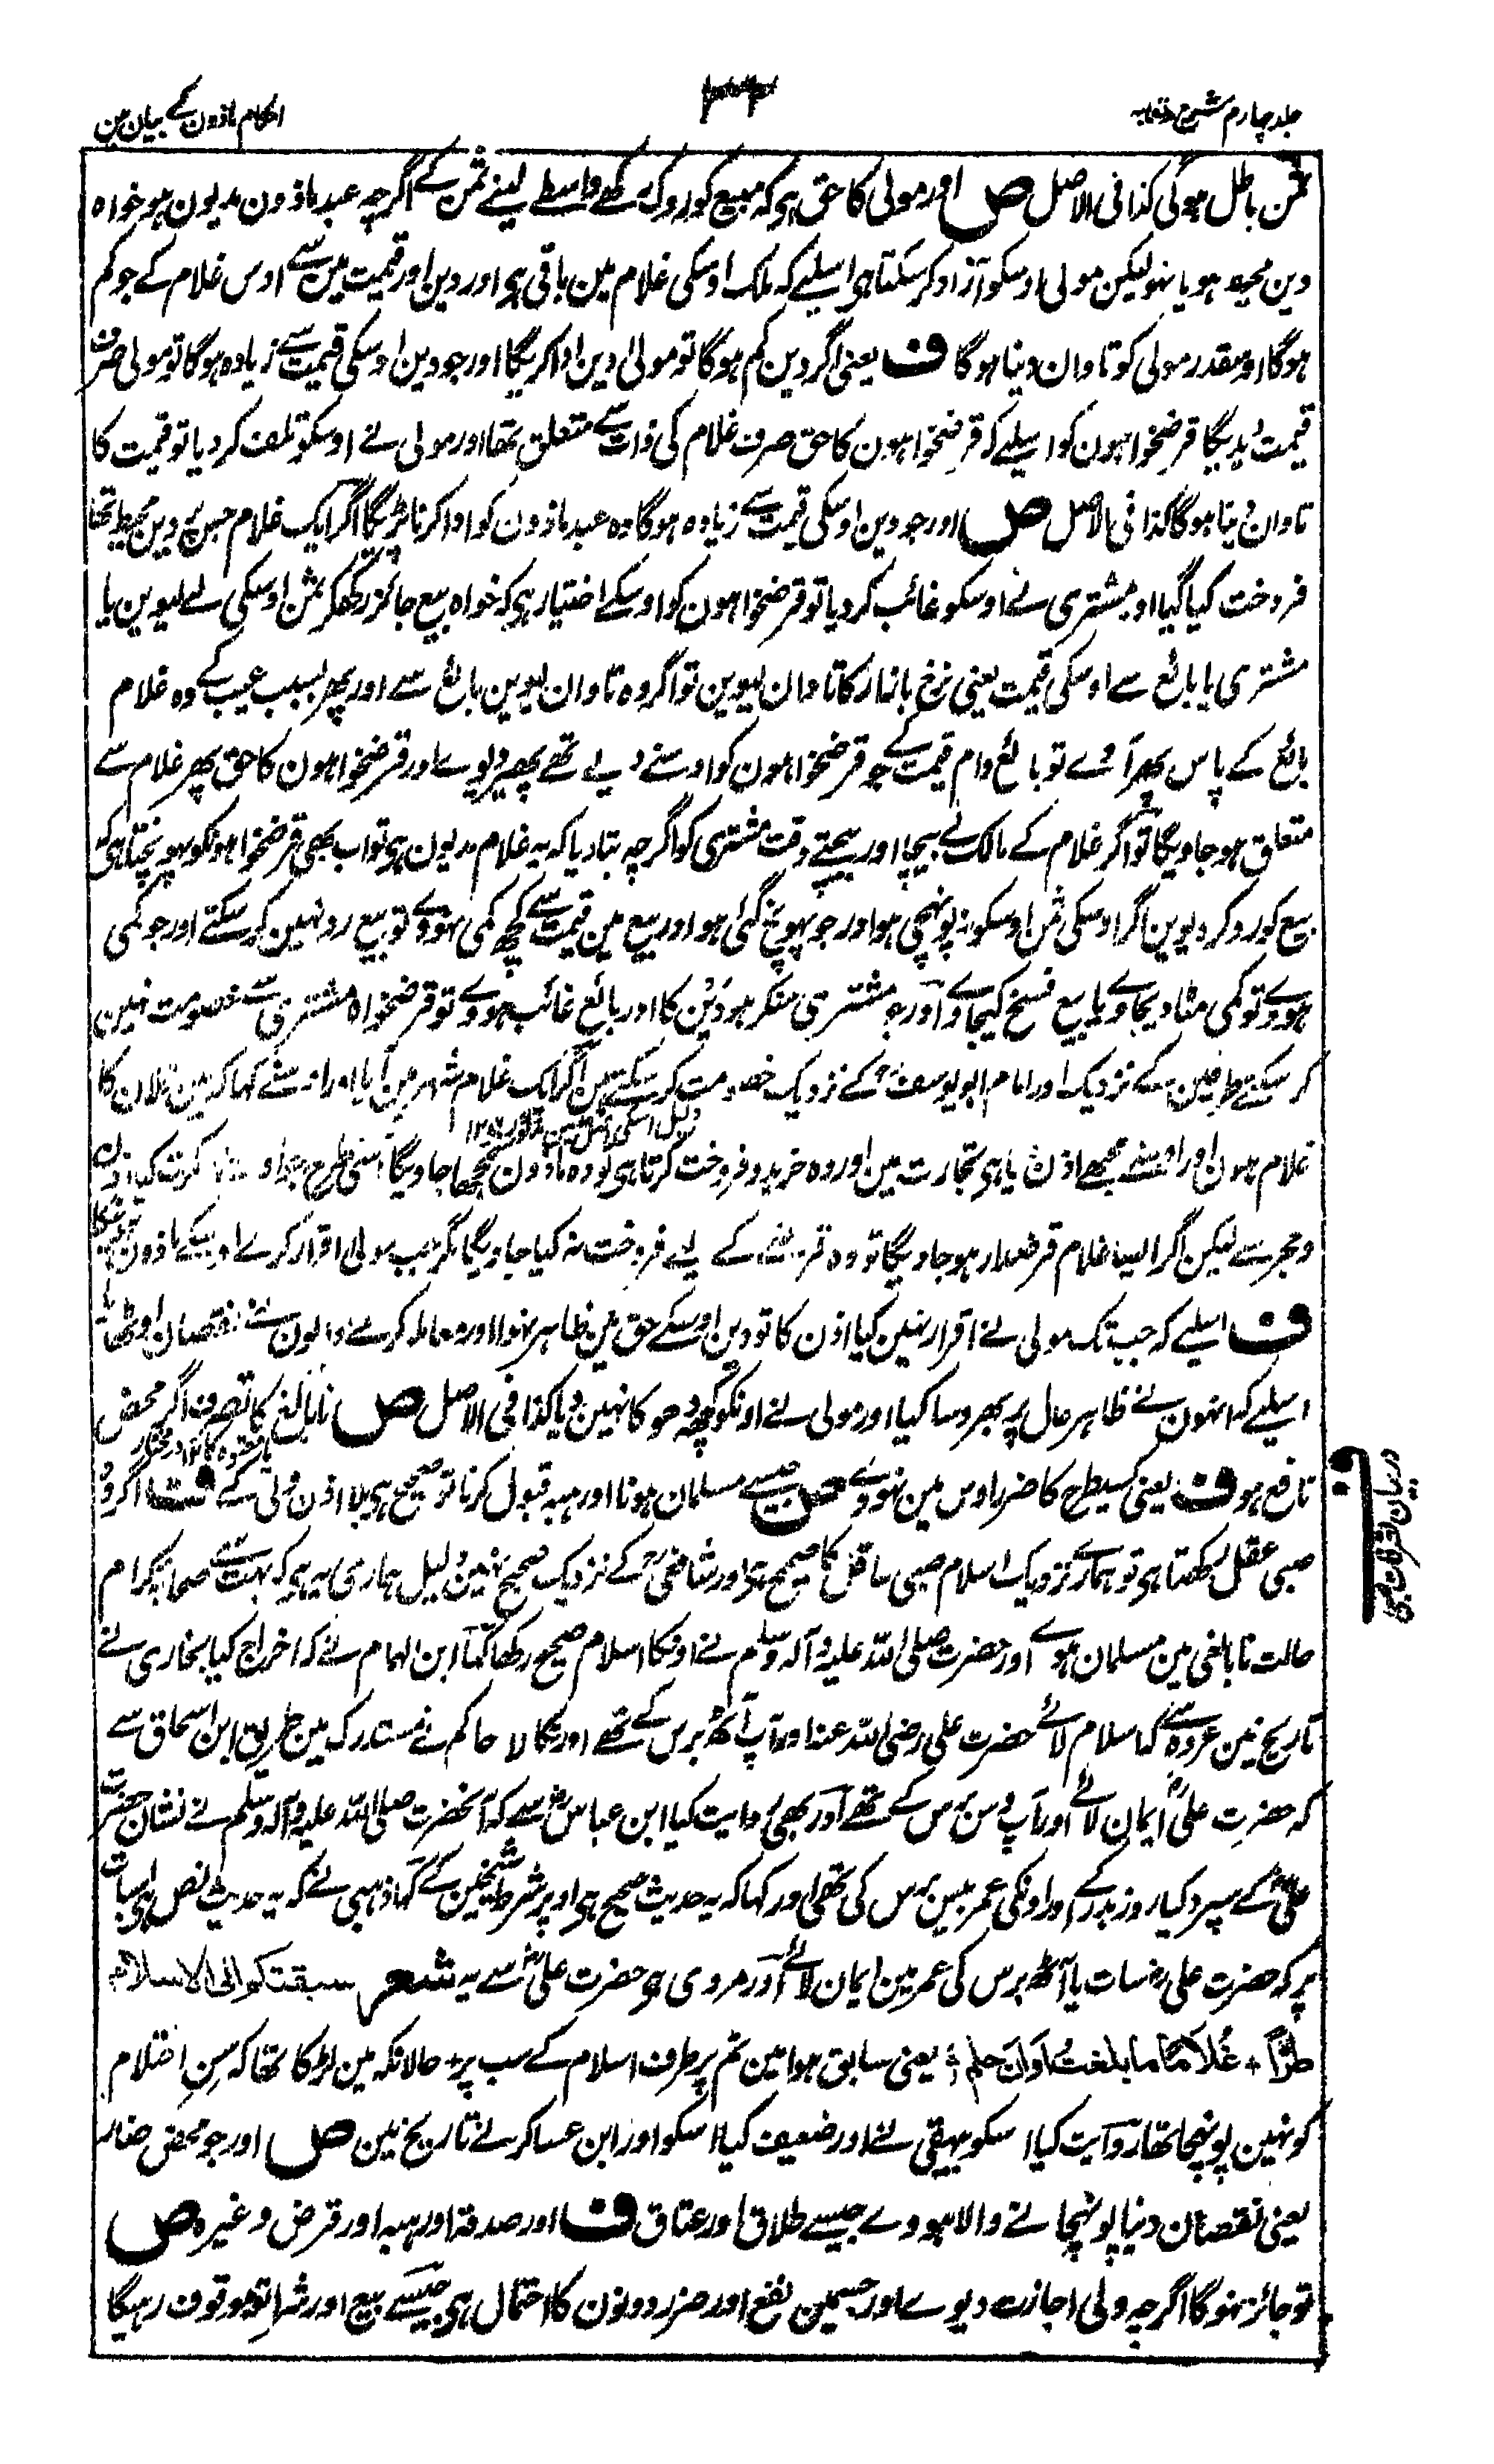 جلد چہارم شرح وقایہ
احکام ماذون کے بیان مین
ثمن باطل ہوگی کذا فی الاصل ص اور مولی کا حق ہی کہ مبیع کو روک رکھے واسطے لینے ثمن کے اگرچہ عبد ماذون مدیون ہو خواہ
دین محیط ہو یا نہو لیکن مولی اوسکو آزاد کر سکتا ہی اسلیے کہ ملک اوسکی غلام مین باقی ہی اور دین اور قیمت مین سے اوس غلام کے جو کم
ہوگا اوسقدر مولی کو تاوان دینا ہوگا ف یعنی اگر دین کم ہوگا تو مولی دین ادا کریگا اور جو دین اوسکی قیمت سے زیادہ ہوگا تو مولی صرف
قیمت دیدیگا قرضخواہون کو اسلیے کہ قرضخواہون کا حق صرف غلام کی ذات سے متعلق تھا اور مولی نے اوسکو تلف کر دیا تو قیمت کا
تاوان دینا ہوگا کذا فی الاصل ص اور جو دین اوسکی قیمت سے زیادہ ہوگا وہ عبد ماذون کو ادا کرنا پڑیگا اگر ایک غلام جس پر دین محیط تھا
فروخت کیا گیا اور مشتری نے اوسکو غائب کر دیا تو قرضخواہون کو اوسکے اختیار ہی کہ خواہ بیع جائز رکھکر ثمن اوسکی لے لیوین یا
مشتری یا بائع سے اوسکی قیمت یعنی نرخ بازار کا تاوان لیوین تو اگر وہ تاوان لیوین بائع سے اور پھر بسبب عیب کے وہ غلام
بائع کے پاس پھر آوے تو بائع دام قیمت کے جو قرضخواہون کو اوسنے دیے تھے پھیر لیوے اور قرضخواہون کا حق پھر غلام سے
متعلق ہو جاویگا تو اگر غلام کے مالک نے بیچا اور بیچتے وقت مشتری کو اگرچہ بتا دیا کہ یہ غلام مدیون ہی تو اب بھی قرضخواہونکو پہونچتا ہی کہ
بیع کو رد کر دیوین اگر اوسکی ثمن اوسکو نہ پونہچی ہو اور جو پہونچ گئی ہو اور بیع مین قیمت سے کچھ کمی نہووے تو بیع رد نہین کر سکتے اور جو کمی
ہووے تو کمی مٹا دیجاوے یا بیع فسخ کیجاوے اور جو مشتری منکر ہو دَین کا اور بائع غائب ہووے تو قرضخواہ مشتری سے خصومت نہین
کر سکتے طرفین کے نزدیک اور امام ابو یوسف کے نزدیک خصومت کر سکتے ہین اگر ایک غلام شہر مین آیا اور اوسنے کہا کہ مین فلان کا
غلام ہون اور اوسنے مجھے اذن دیا ہی تجارت مین اور وہ خرید و فروخت کرتا ہی تو وہ ماذون سمجھا جاویگا اسی طرح
و حجر سے لیکن اگر ایسا غلام قرضدار ہو جاویگا تو وہ قرضے کے لیے فروخت نہ کیا جاویگا مگر جب مولی اقرار کرے اوسکے ماذون
ف اسلیے کہ جب تک مولی نے اقرار نہین کیا اذن کا تو دین اوسکے حق مین ظاہر نہوا اور معاملہ کرنے والون نے نقصان اوٹھایا
اسلیے کہ انہون نے ظاہر حال پر بھروسا کیا اور مولی نے اونکو کچھ دھوکا نہین دیا کذا فی الاصل ص نابالغ کا تصرف اگر محض
نافع ہو ف یعنی کسیطرح کا ضرر اوس مین نہووے ص جیسے مسلمان ہونا اور ہبہ قبول کرنا تو صحیح ہی بلا اذن ولی کے ف اگر وہ
صبی عقل رکھتا ہی تو ہمارے نزدیک اسلام صبی عاقل کا صحیح ہی اور شافعی کے نزدیک صحیح نہین دلیل ہماری یہ ہی کہ بہت سے صحابہ کرام
حالت نابالغی مین مسلمان ہوے اور حضرت صلی اللہ علیہ وآلہ وسلم نے اونکا اسلام صحیح رکھا کہا ابن الہمام نے کہ اخراج کیا بخاری نے
تاریخ مین عروہ سے کہ اسلام لائے حضرت علی رضی اللہ عنہ اور آپ آٹھ برس کے تھے اور نکالا حاکم نے مستدرک مین طریق ابن اسحاق سے
کہ حضرت علی ایمان لائے اور آپ دس برس کے تھے اور بھی روایت کیا ابن عباس سے کہ آنحضرت صلی اللہ علیہ وآلہ وسلم نے نشان حضرت
علی کے سپرد کیا روز بدر کے اور اونکی عمر بیس برس کی تھی اور کہا کہ یہ حدیث صحیح ہی اوپر شرط شیخین کے کہا ذہبی نے کہ یہ حدیث نص ہی اس بات
پر کہ حضرت علی سات یا آٹھ برس کی عمر مین ایمان لائے اور مروی ہی حضرت علی سے یہ شعر سبقتکو الی الاسلام
طرًّا + غلامًا ما بلغتُ اوان حلم یعنی سابق ہوا مین تم پر طرف اسلام کے سب پر + حالانکہ مین لڑکا تھا کہ سن احتلام
کو نہین پونہچا تھا روایت کیا اسکو بیہقی نے اور ضعیف کیا اسکو اور ابن عساکر نے تاریخ مین ص اور جو محض ضار
یعنی نقصان دنیا پونہچانے والا ہووے جیسے طلاق اور عتاق ف اور صدقہ اور ہبہ اور قرض وغیرہ ص
تو جائز نہوگا اگرچہ ولی اجازت دیوے اور جسمین نفع اور ضرر دونون کا احتمال ہی جیسے بیع اور شرا تو موقوف رہیگا